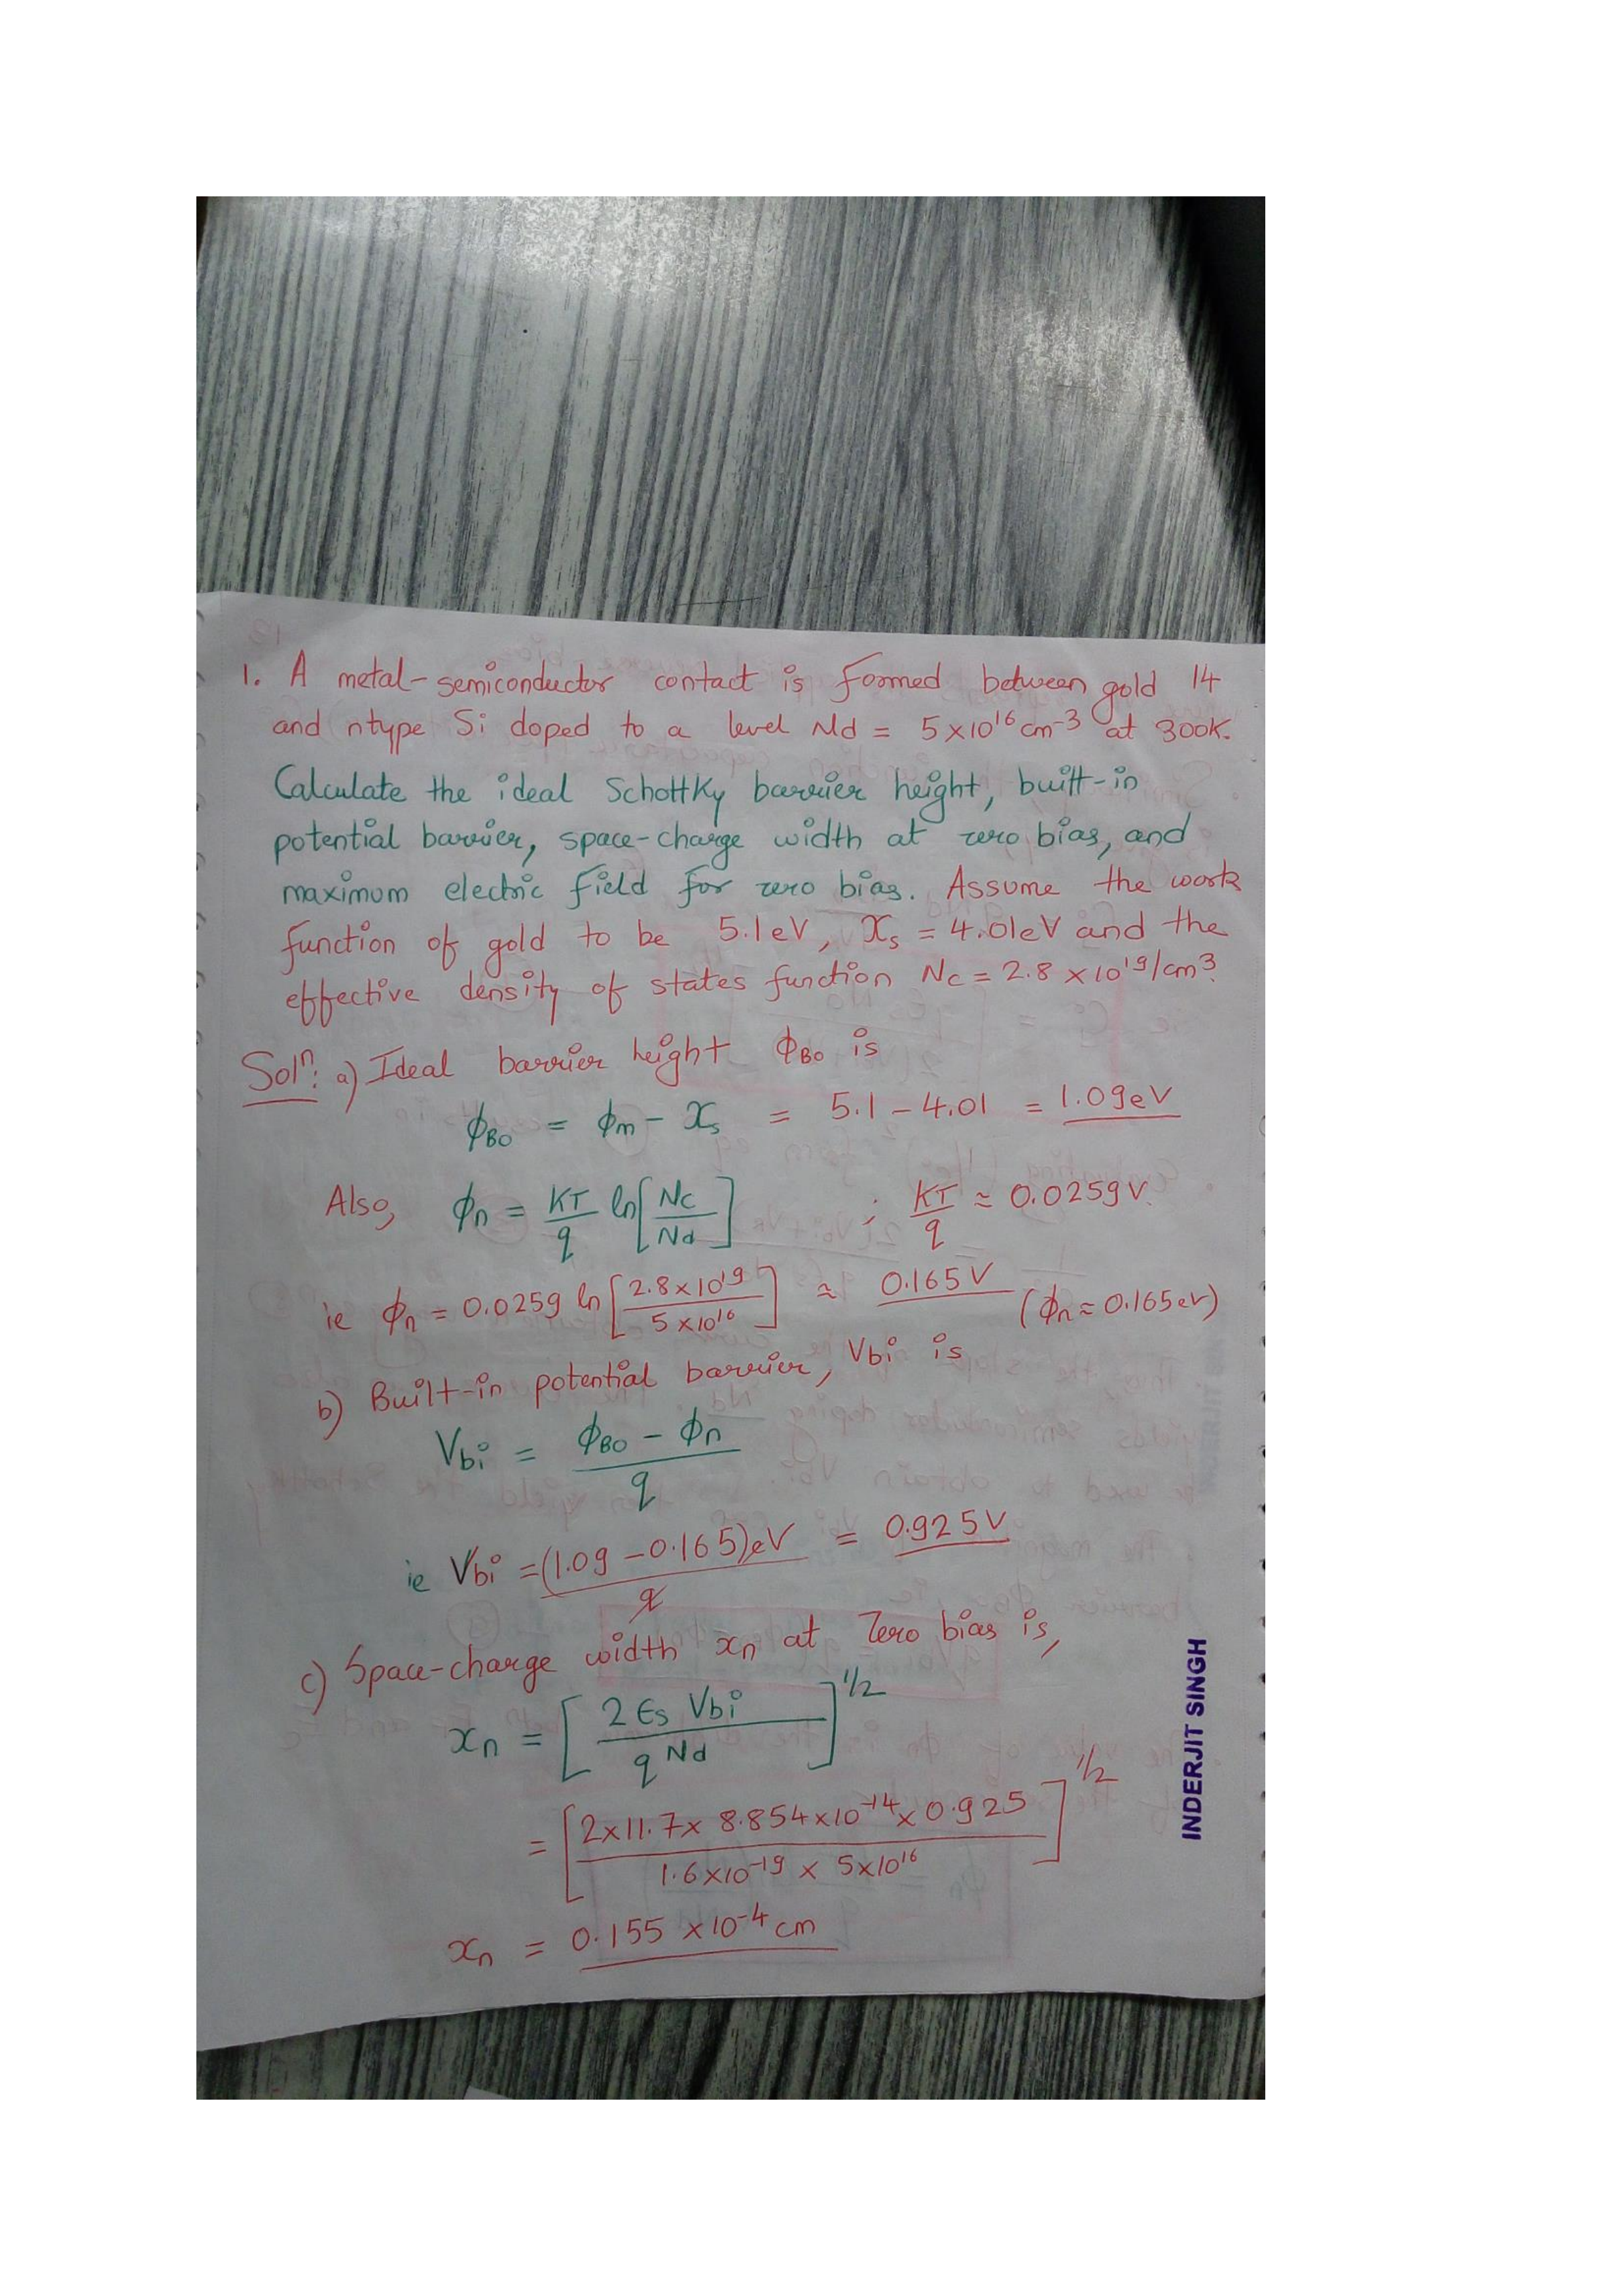 1. A metal-semiconductor contact is formed between gold 14
and ntype Si doped to a level Nd = 5×10¹⁶ cm⁻³ at 300K.
Calculate the ideal Schottky barrier height, built-in
potential barrier, space-charge width at zero bias, and
maximum electric field for zero bias. Assume the work
function of gold to be 5.1eV, χs = 4.01eV and the
effective density of states function Nc = 2.8 × 10¹⁹/cm³.
Solⁿ: a) Ideal barrier height ϕB0 is
ϕB0 = ϕm − χs = 5.1 − 4.01 = 1.09eV
Also, ϕn = KT/q ln[Nc/Nd] ; KT/q ≈ 0.0259V.
ie ϕn = 0.0259 ln[2.8×10¹⁹/5×10¹⁶] ≈ 0.165V (ϕn ≈ 0.165ev)
b) Built-in potential barrier, Vbi is
Vbi = ϕB0 − ϕn / q
ie Vbi = (1.09 − 0.165)eV / q = 0.925V
c) Space-charge width xn at Zero bias is,
xn = [2 ϵs Vbi / q Nd]^1/2
= [2×11.7× 8.854×10⁻¹⁴ × 0.925 / 1.6×10⁻¹⁹ × 5×10¹⁶]^1/2
xn = 0.155 ×10⁻⁴ cm
INDERJIT SINGH